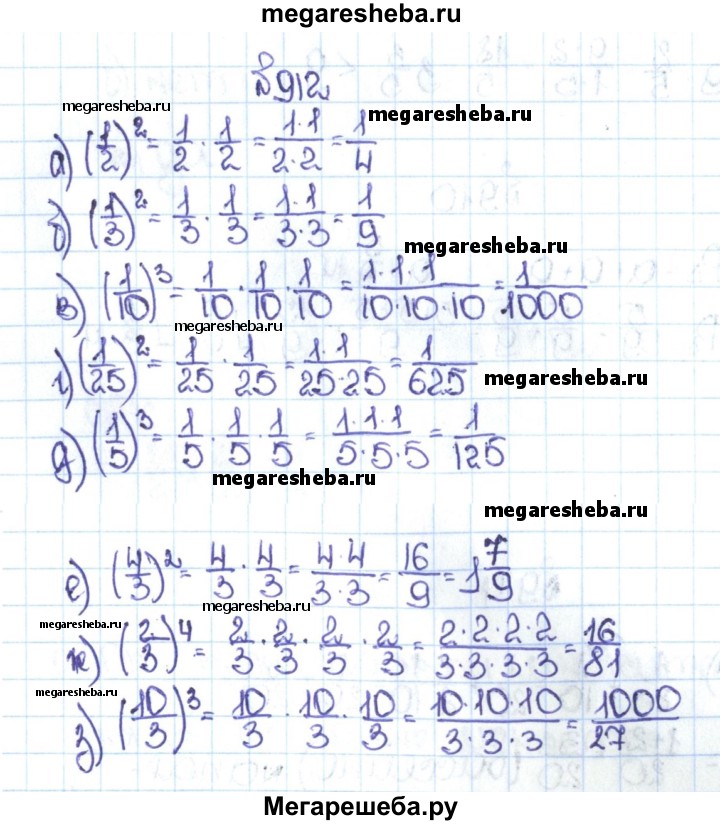 megaresheba.ru
№912
megaresheba.ru
megaresheba.ru
а) (1/2)² = 1/2 · 1/2 = 1·1/2·2 = 1/4
б) (1/3)² = 1/3 · 1/3 = 1·1/3·3 = 1/9
megaresheba.ru
в) (1/10)³ = 1/10 · 1/10 · 1/10 = 1·1·1/10·10·10 = 1/1000
megaresheba.ru
г) (1/25)² = 1/25 · 1/25 = 1·1/25·25 = 1/625
megaresheba.ru
д) (1/5)³ = 1/5 · 1/5 · 1/5 = 1·1·1/5·5·5 = 1/125
megaresheba.ru
megaresheba.ru
е) (4/3)² = 4/3 · 4/3 = 4·4/3·3 = 16/9 = 1 7/9
megaresheba.ru
megaresheba.ru
ж) (2/3)⁴ = 2/3 · 2/3 · 2/3 · 2/3 = 2·2·2·2/3·3·3·3 = 16/81
megaresheba.ru
з) (10/3)³ = 10/3 · 10/3 · 10/3 = 10·10·10/3·3·3 = 1000/27
Мегарешеба.ру